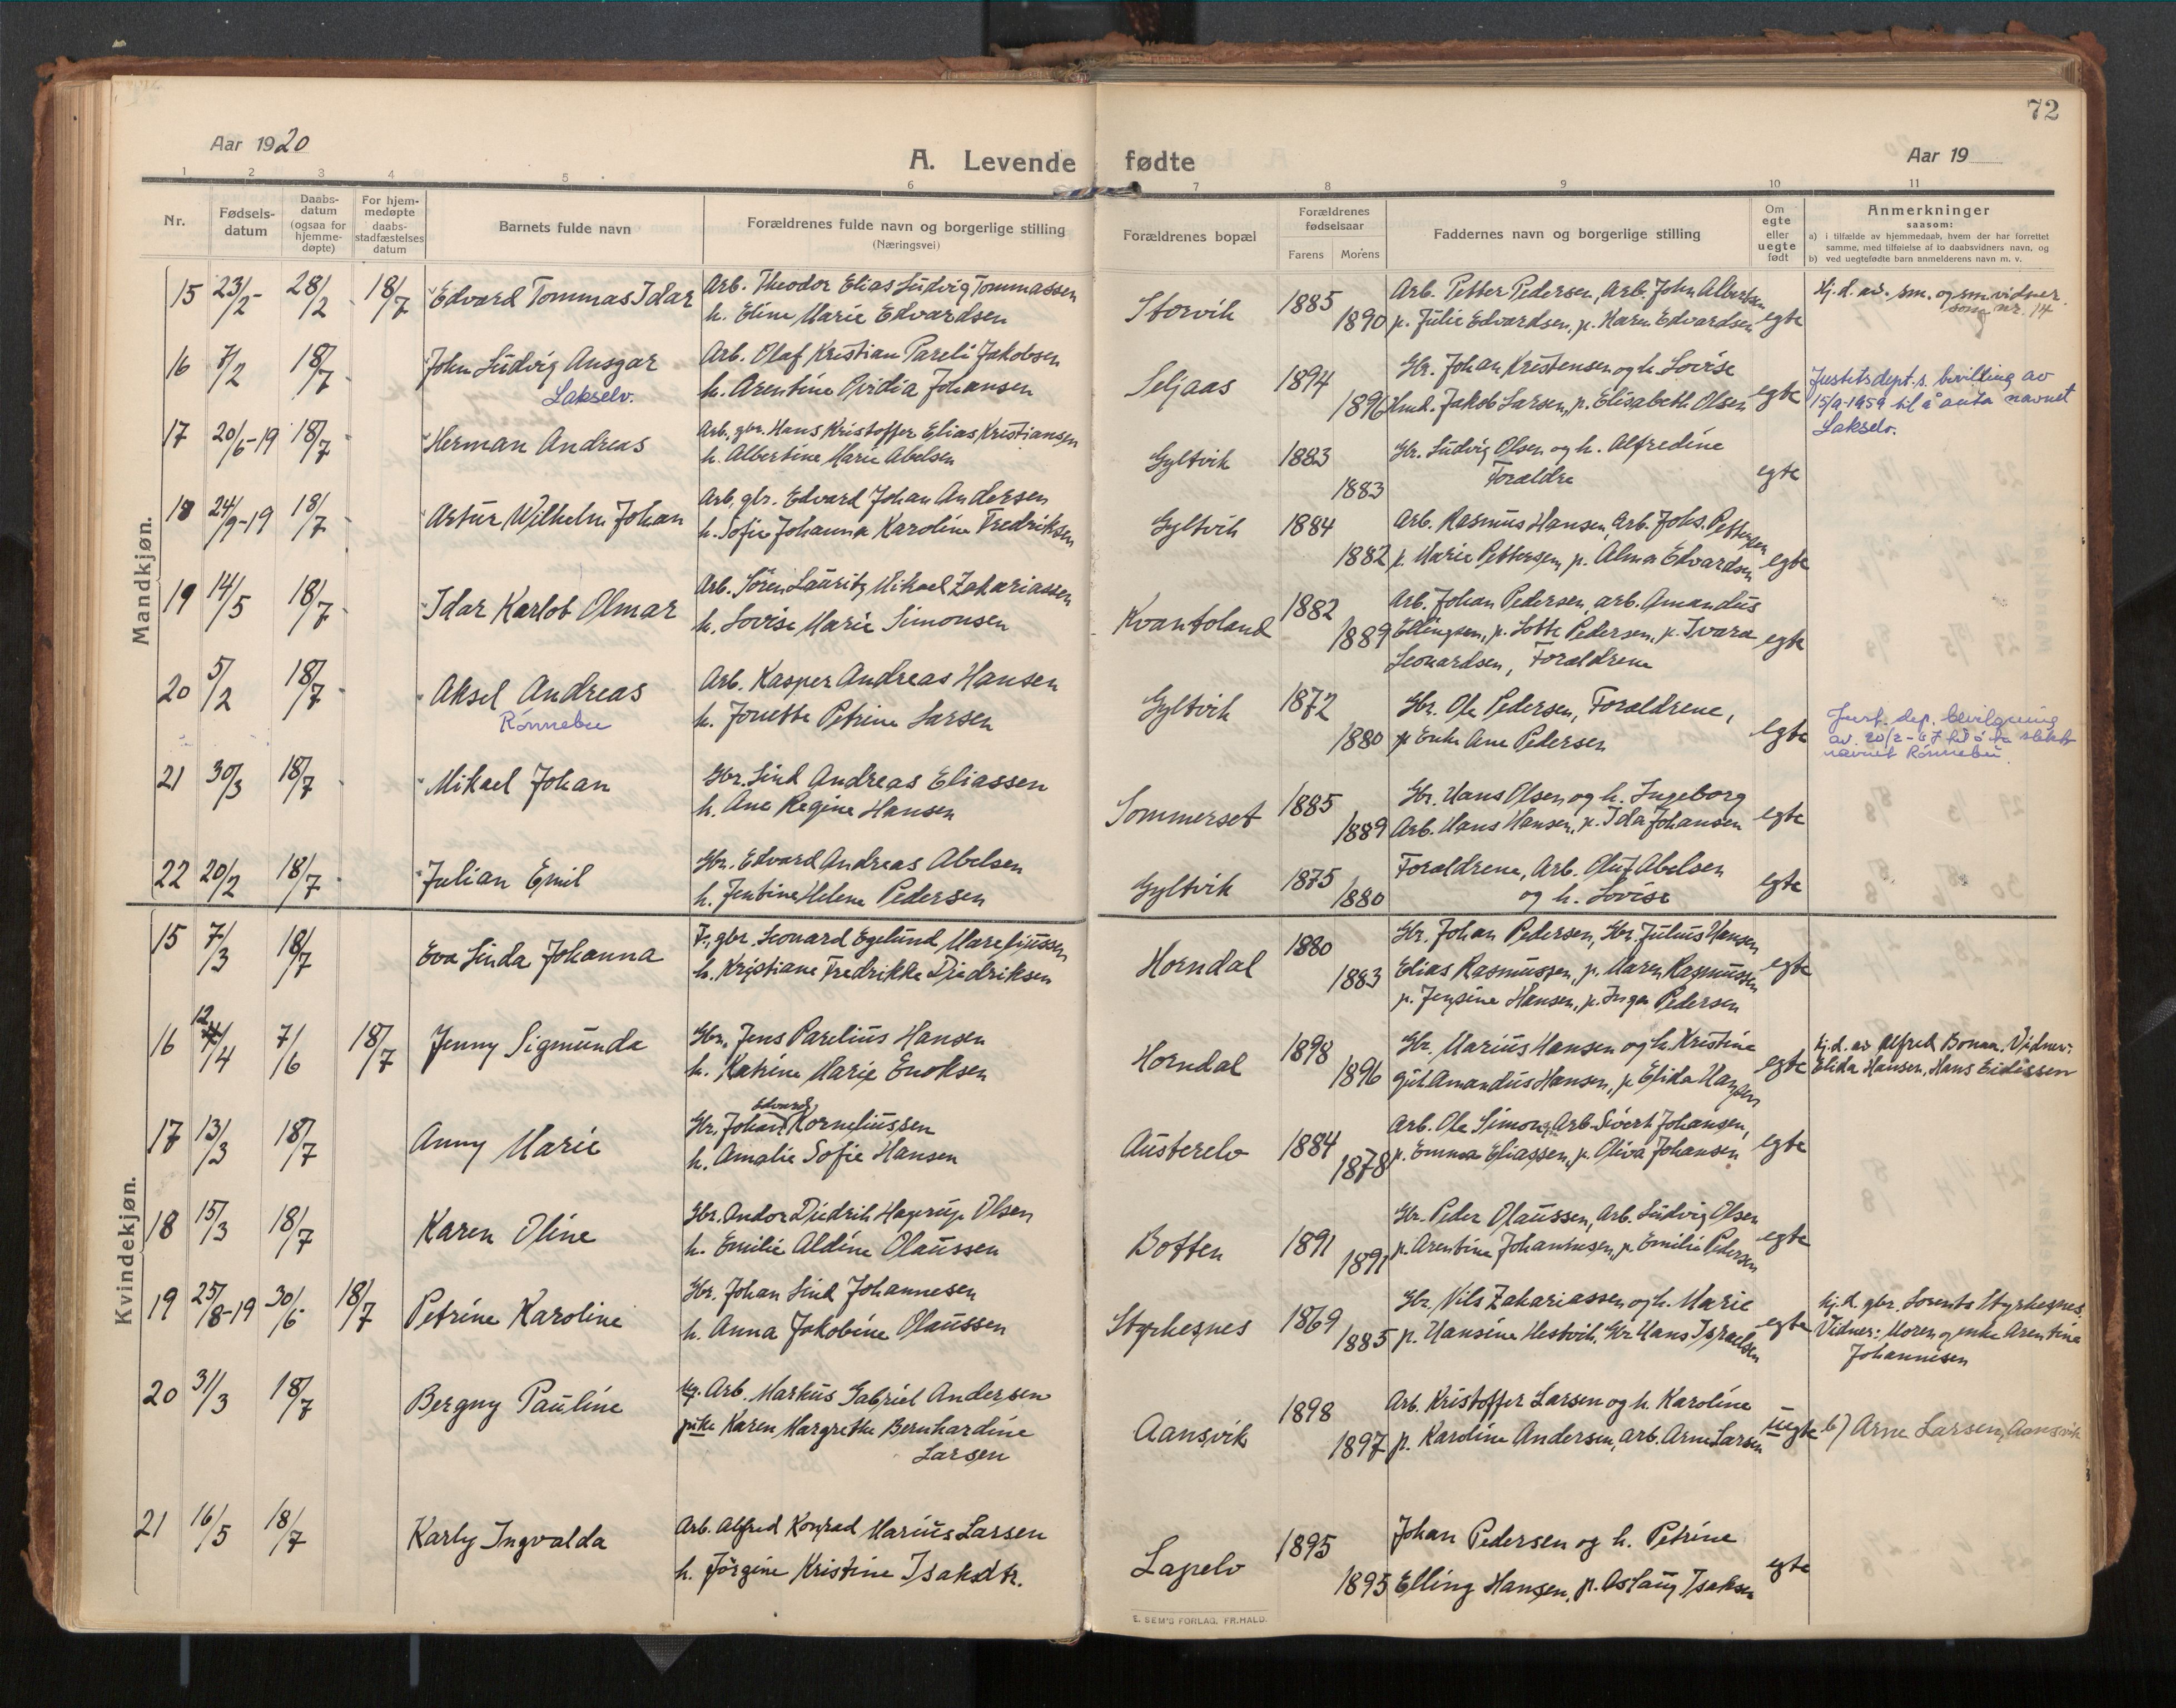 72
Aar 1920
A. Levende fødte
Aar 19
1 2 3 4 5 6 7 8 9 10 11
Nr.
Fødselsdatum
Daabsdatum (ogsaa for hjemmedøpte)
For hjemmedøpte daabsstadfæstelses datum
Barnets fulde navn
Forældrenes fulde navn og borgerlige stilling
(Næringsvei)
Forældrenes bopæl
Forældrenes fødselsaar
Farens Morens
Faddernes navn og borgerlige stilling
Om egte eller uegte født
Anmerkninger
saasom:
a) i tilfælde av hjemmedaab, hvem der har forrettet
samme, med tilføielse af to daabsvidners navn, og
b) ved uegtefødte barn anmelderens navn m. v.
Mandkjøn.
15 23/2 28/2 18/7 Edvard Tommas Idar
Arb. Theodor Elias Ludvig Tommassen
h. Eline Marie Edvardsen
Storvik 1885 1890
Arb. Petter Pedersen, Arb. John Albertsen
p. Julie Edvardsen, p. Karen Edvardsen egte
Hj. d. av. sm. og sm. vidner
som nr. 14
16 7/2 18/7 John Ludvig Ansgar
Lakselv.
Arb. Olaf Kristian Pareli Jakobsen
h. Arentine Ovidia Johansen
Seljaas 1894 1896
Gbr. Johan Kristensen og h. Lovise
Hmd. Jakob Larsen, p. Elisabeth Olsen egte
Justitsdept.s. bevilling av
15/9-1959 til å anta navnet
Lakselv.
17 20/6-19 18/7 Herman Andreas
Arb. gbr. Hans Kristoffer Elias Kristiansen
h. Albertine Marie Abelsen
Gyltvik 1883 1883
Gbr. Ludvig Olsen og h. Alfredine
Forældre egte
18 24/9-19 18/7 Artur Wilhelm Johan
Arb. gbr. Edvard Johan Andersen
h. Sofie Johanna Karoline Fredriksen
Gyltvik 1884 1882
Arb. Rasmus Hansen, Arb. Johs. Pettersen
p. Marie Pettersen, p. Alma Edvardsen egte
19 14/5 18/7 Idar Karlot Olmar
Arb. Søren Lauritz Mikael Zakariassen
h. Lovise Marie Simonsen
Kvantoland 1882 1889
Arb. Johan Pedersen, arb. Amandus
Ellingsen, p. Lotte Pedersen, p. Ivara
Leonardsen, Forældrene egte
20 5/2 18/7 Aksel Andreas
Rønnebu
Arb. Kasper Andreas Hansen
h. Jonette Petrine Larsen
Gyltvik 1872 1880
Gbr. Ole Pedersen, Forældrene,
p Enke Ane Pedersen egte
Just. dep. bevilgning
av. 20/2-67 til å ta slekts
navnet Rønnebu.
21 30/3 18/7 Mikael Johan
Gbr. Lind Andreas Eliassen
h. Ane Regine Hansen
Sommerset 1885 1889
Gbr. Hans Olsen og h. Ingeborg
Arb. Hans Hansen, p. Ida Johansen egte
22 20/2 18/7 Julian Emil
Gbr. Edvard Andreas Abelsen
h. Jentine Helene Pedersen
Gyltvik 1875 1880
Forældrene, Arb. Oluf Abelsen
og h. Lovise egte
Kvindekjøn.
15 7/3 18/7 Eva Linda Johanna
F., gbr. Leonard Egelund Mareliussen
h. Kristiane Fredrikke Diedriksen
Horndal 1880 1883
Gbr. Johan Pedersen, Gbr. Julius Hansen
Elias Rasmussen, p. Maren Rasmussen
p. Jensine Hansen, p. Inga Pedersen egte
16 12/4 7/6 18/7 Jenny Sigmunda
Gbr. Jens Parelius Hansen
h. Katrine Marie Enoksen
Horndal 1898 1896
Gbr. Marius Hansen og h. Kristine
gut Amandus Hansen, p Elida Hansen egte
hj. d. av Alfred Bonaa. Vidner:
Elida Hansen, Hans Eidissen
17 13/3 18/7 Anny Marie
Edvard
Gbr. Johan Korneliussen
h. Amalie Sofie Hansen
Austerelv 1884 1878
Arb. Ole Simons, Arb. Sivert Johansen,
p. Emma Eliassen, p. Oliva Johansen egte
18 15/3 18/7 Karen Oline
Gbr. Andor Diedrik Hagerup Olsen
h. Emilie Aldine Olaussen
Botten 1891 1891
Gbr. Peder Olaussen, Arb. Ludvig Olsen
p. Arentine Johannesen, p. Emilie Pedersen egte
19 25/8-19 30/6 18/7 Petrine Karoline
Gbr. Johan Lind Johannesen
h. Anna Jakobine Olaussen
Styrkesnes 1869 1885
Gbr. Nils Zakariassen og h. Marie
p. Hansine Hestvik, Gbr Hans Israelsen egte
hj. d. gbr. Lorents Styrkesnes
Vidner: Moren og enke Arentine
Johannesen
20 31/3 18/7 Bergny Pauline
ug. Arb. Markus Gabriel Andersen
pike Karen Margrethe Bernhardine
Larsen
Aansvik 1898 1897
Arb. Kristoffer Larsen og h. Karoline
p. Karoline Andersen, arb. Arne Larsen uegte
b) Arne Larsen, Aansvik
21 16/5 18/7 Karly Ingvalda
Arb. Alfred Konrad Marius Larsen
h. Jørgine Kristine Isaksdtr.
Lapelv 1895 1895
Johan Pedersen og h. Petrine
Elling Hansen, p. Aslaug Isaksen egte
E. SEM'S FORLAG, FR.HALD.